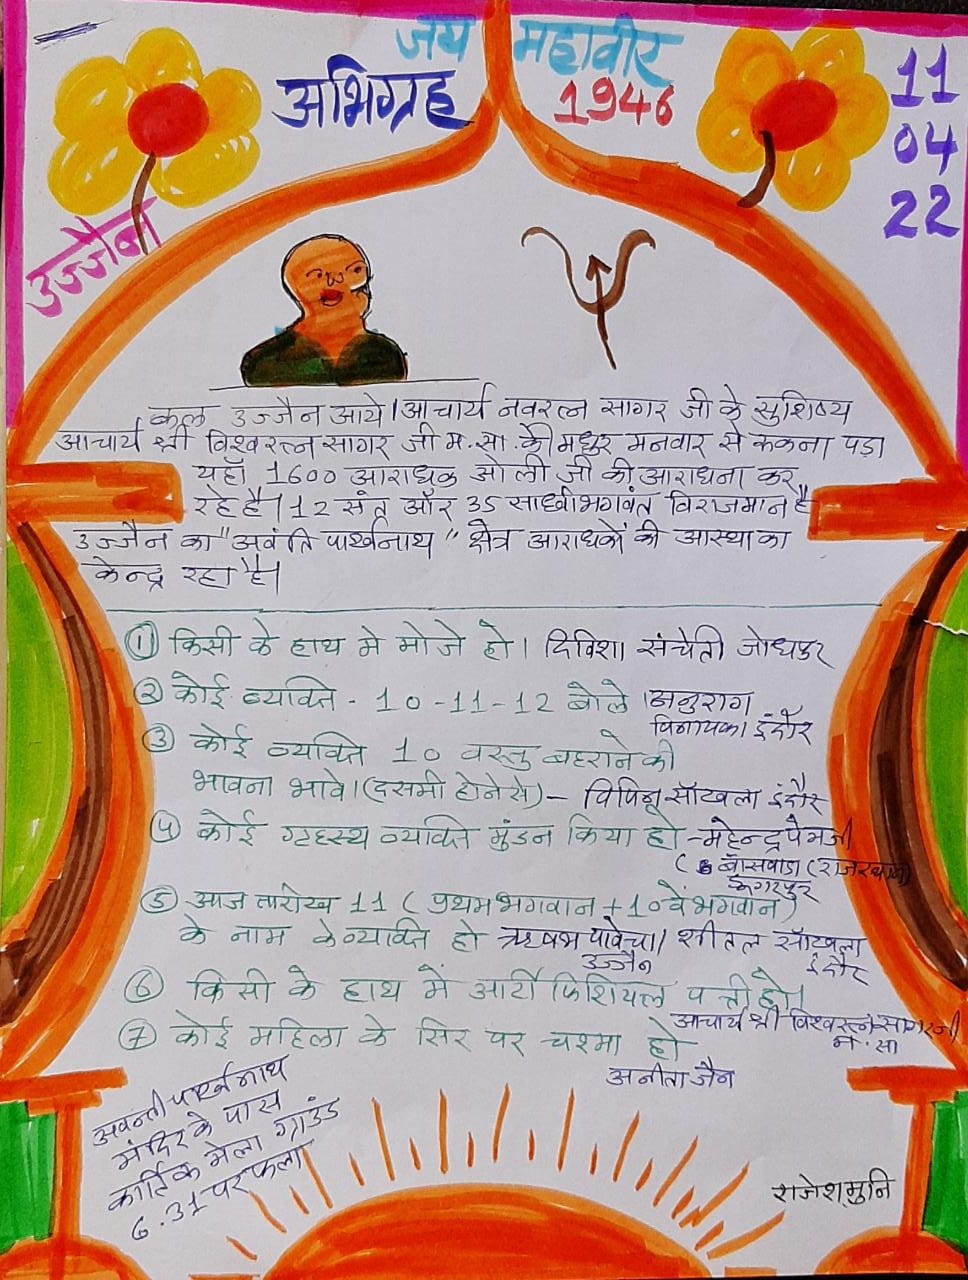 जय महावीर
अभिग्रह 1946
11
04
22
उज्जैन
कल उज्जैन आये। आचार्य नवरत्न सागर जी के सुशिष्य
आचार्य श्री विश्वरत्न सागर जी म. सा. की मधुर मनवार से रुकना पड़ा
यहाँ 1600 आराधक ओली जी की आराधना कर
रहे है। 12 संत और 35 साध्वी भगवंत विराजमान है
उज्जैन का "अवंति पार्श्वनाथ" क्षेत्र आराधकों की आस्था का
केन्द्र रहा है।
① किसी के हाथ मे मोजे हो। दिविशा संचेती जोधपुर
② कोई व्यक्ति - 10-11-12 बोले। अनुराग
विनायका इंदौर
③ कोई व्यक्ति 10 वस्तु बहराने की
भावना भावे। (दसमी होने से) - विपिन सॉखला इंदौर
④ कोई गृहस्थ व्यक्ति मुंडन किया हो - महेन्द्र पेमजी
बॉसवाडा (राजस्थान)
डूंगरपुर
⑤ आज तारीख 11 (प्रथम भगवान + 10 वें भगवान)
के नाम के व्यक्ति हो ऋषभ पावेचा / शीतल सॉखला
उज्जैन इंदौर
⑥ किसी के हाथ में आर्टीफिशियल पत्ती हो।
आचार्य श्री विश्वरत्न सागरजी
म. सा
⑦ कोई महिला के सिर पर चश्मा हो
अनीता जैन
अवन्ती पार्श्वनाथ
मंदिर के पास
कार्तिक मेला ग्राउंड
6.31 पर फला
राजेश मुनि